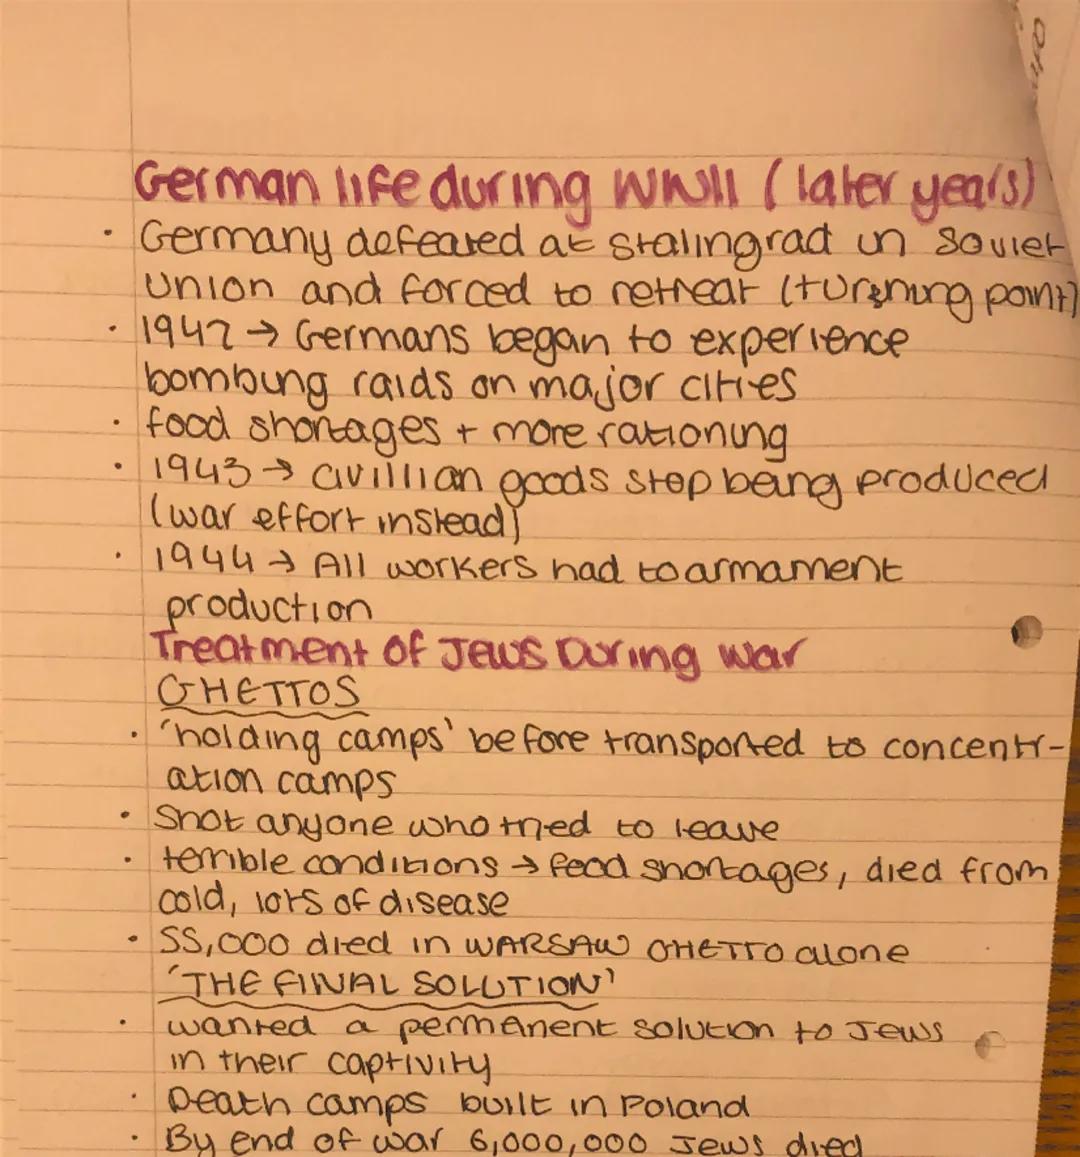 German life during WWII (later years)
· Germany defeated at Stalingrad in Soviet
Union and forced to retreat (turning point)
· 1942 → Germans began to experience
bombing raids on major cities
· food shortages + more rationing
· 1943 → civillian goods stop being produced
(war effort instead)
· 1944 → All workers had to armament
production
Treatment of Jews During war
GHETTOS
· 'holding camps' before transported to concentr-
ation camps
· Shot anyone who tried to leave
· terrible conditions → food shortages, died from
cold, lots of disease
· 55,000 died in WARSAW GHETTO alone
'THE FINAL SOLUTION'
· wanted a permanent solution to Jews
in their captivity
· Death camps built in Poland
· By end of war 6,000,000 Jews died